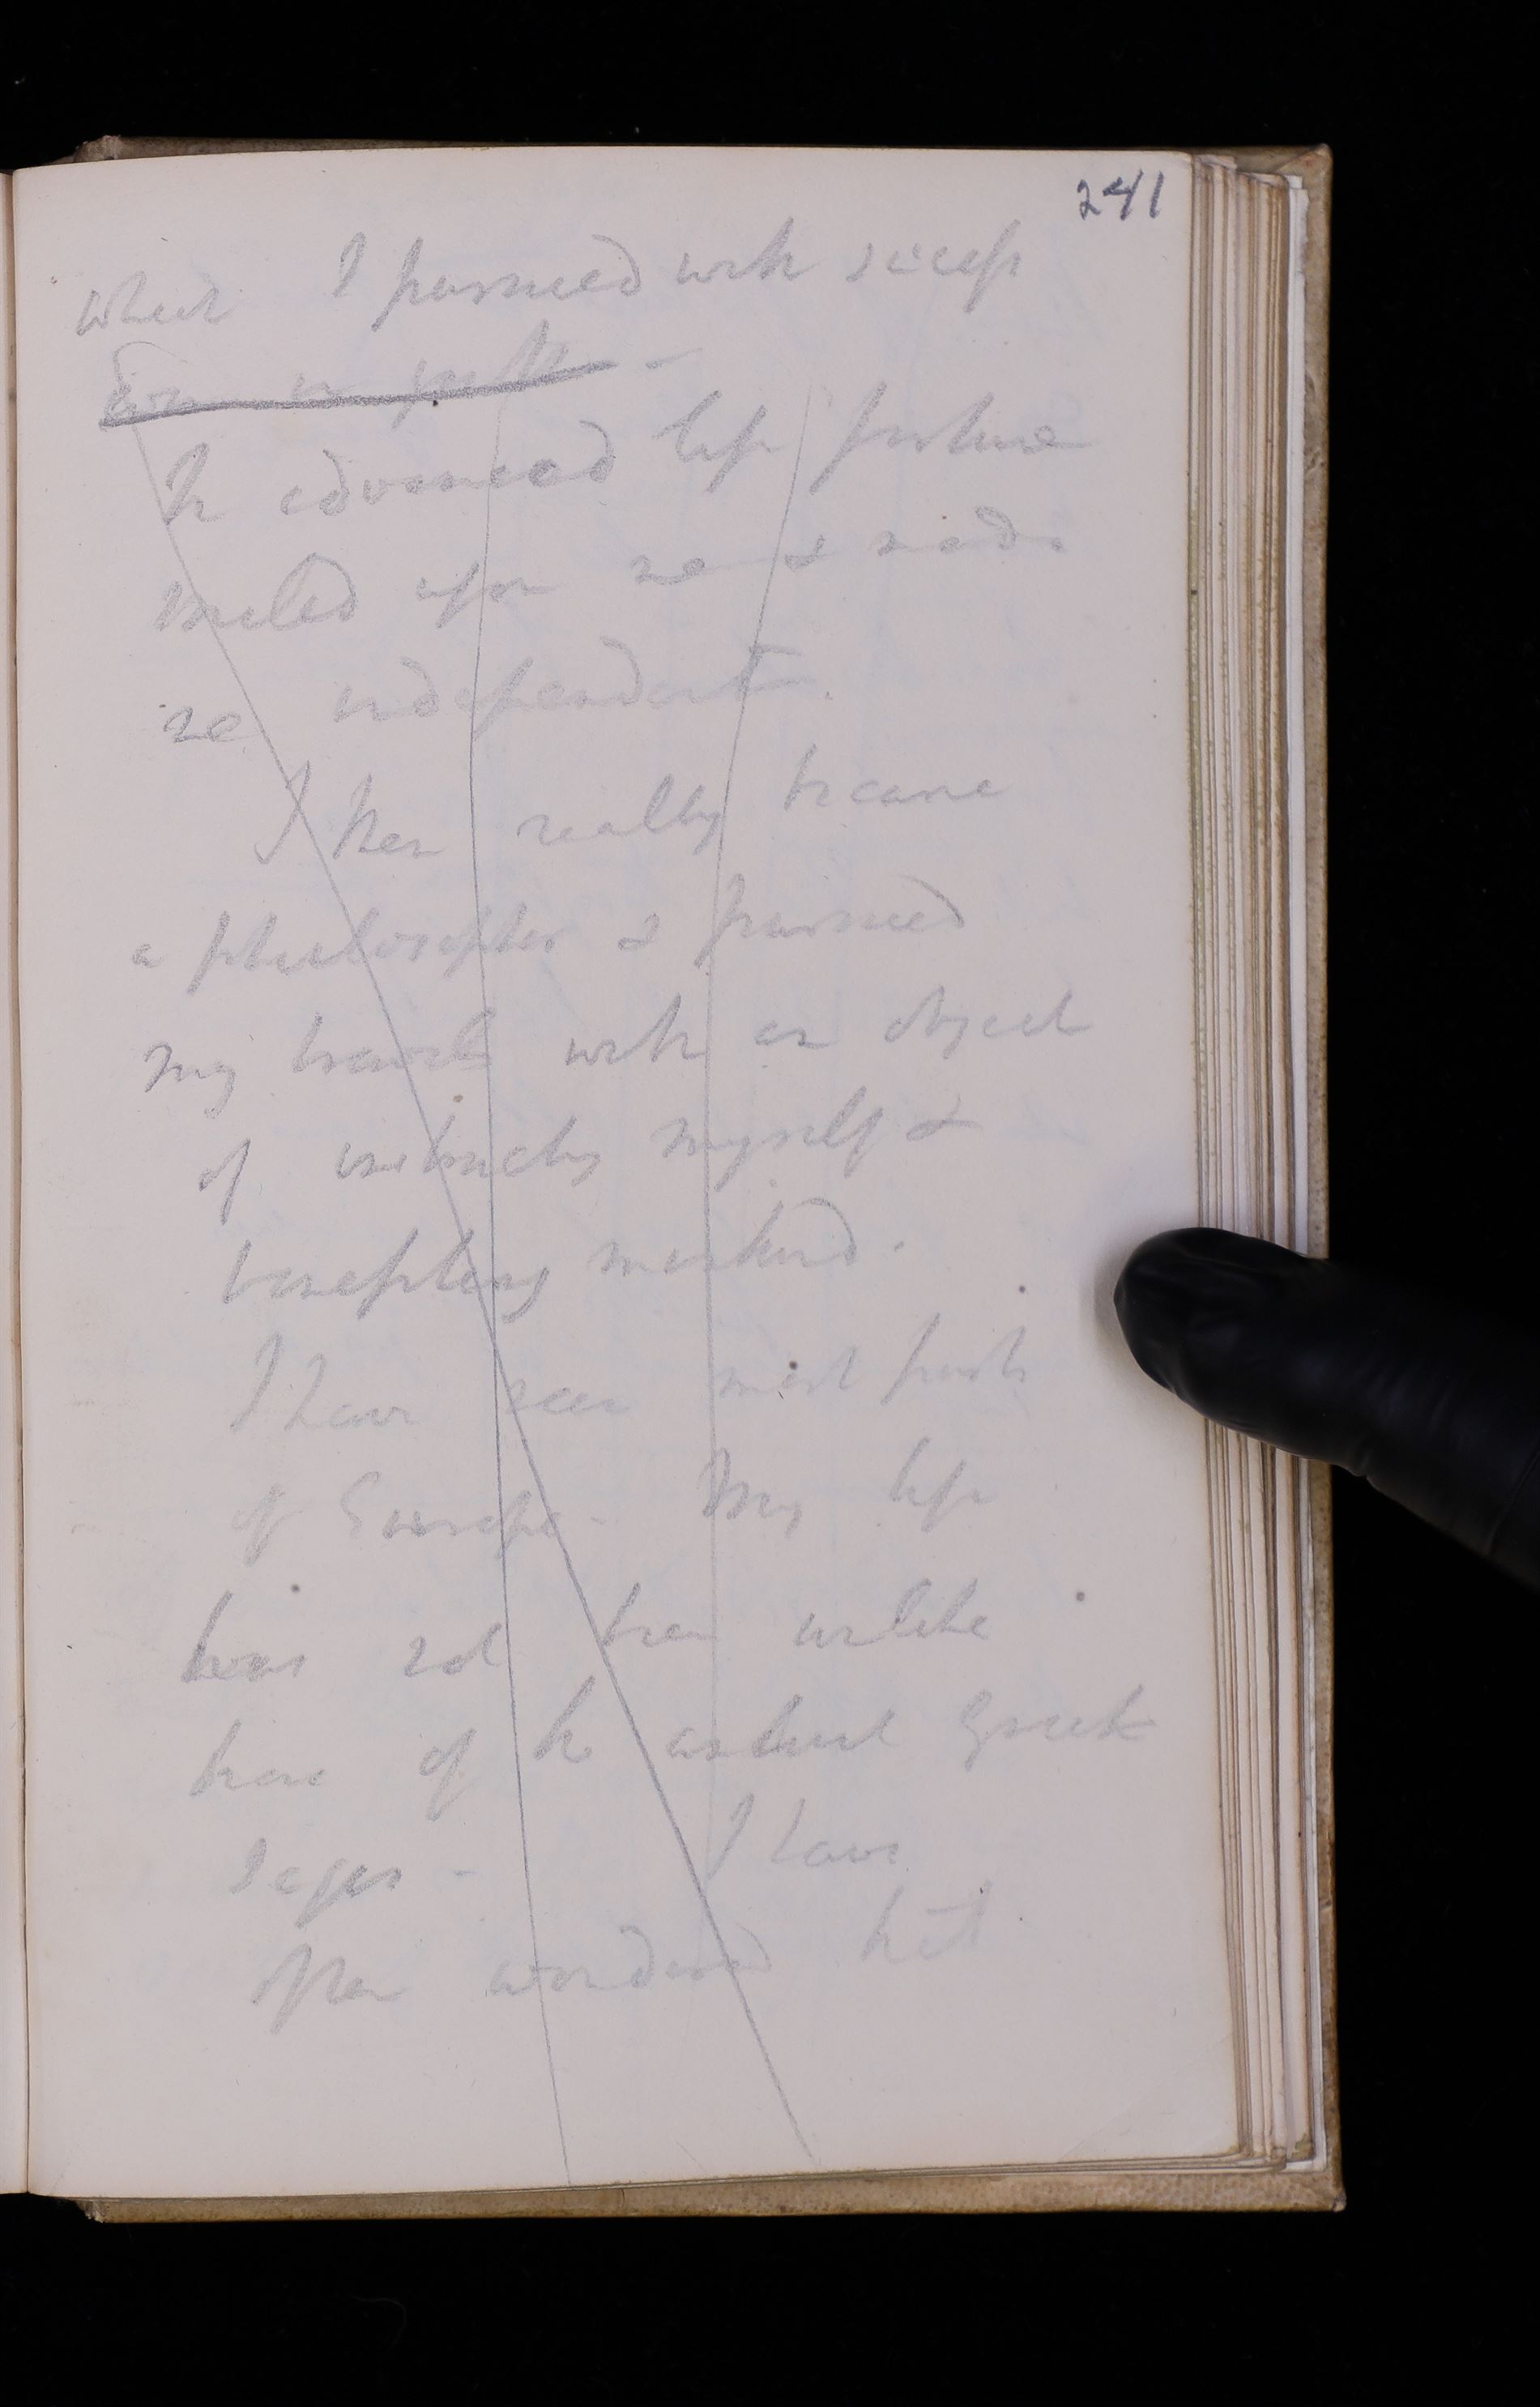 241
which I pursued with success
In advanced life fortune
smiled upon me & made
me independent.
I then really became
a philosopher & pursued
my travels with an object
of instructing myself &
benefiting mankind.
I have seen most parts
of Europe - My life
has not been unlike
that of the antient Greek
Sages - I have
often wondered that